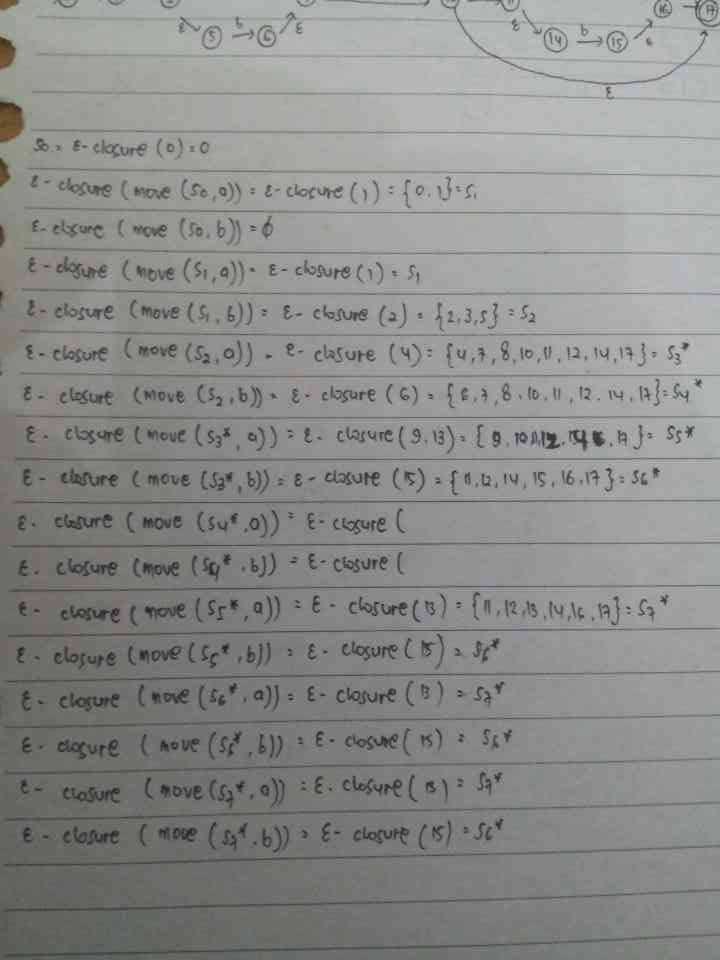 16 17
ε 5 b 6 ε ε 14 b 15 ε
ε
S0 = ε-closure (0) = 0
ε-closure (move (S0, a)) = ε-closure (1) = {0, 1} = S1
ε-closure (move (S0, b)) = ϕ
ε-closure (move (S1, a)) = ε-closure (1) = S1
ε-closure (move (S1, b)) = ε-closure (2) = {2,3,5} = S2
ε-closure (move (S2, a)) = e-closure (4) = {4,7,8,10,11,12,14,17} = S3*
ε-closure (move (S2, b)) = ε-closure (6) = {6,7,8,10,11,12,14,17} = S4*
ε-closure (move (S3*, a)) = ε-closure (9,13) = { 9,10,11,12, 17 } = S5*
ε-closure (move (S3*, b)) = ε-closure (15) = {11,12,14,15,16,17} = S6*
ε-closure (move (S4*, a)) = ε-closure (
ε-closure (move (S4*, b)) = ε-closure (
ε-closure (move (S5*, a)) = ε-closure (13) = {11,12,13,14,16,17} = S7*
ε-closure (move (S5*, b)) = ε-closure (15) = S6*
ε-closure (move (S6*, a)) = ε-closure (13) = S7*
ε-closure (move (S6*, b)) = ε-closure (15) = S6*
ε-closure (move (S7*, a)) = ε-closure (13) = S7*
ε-closure (move (S7*, b)) = ε-closure (15) = S6*